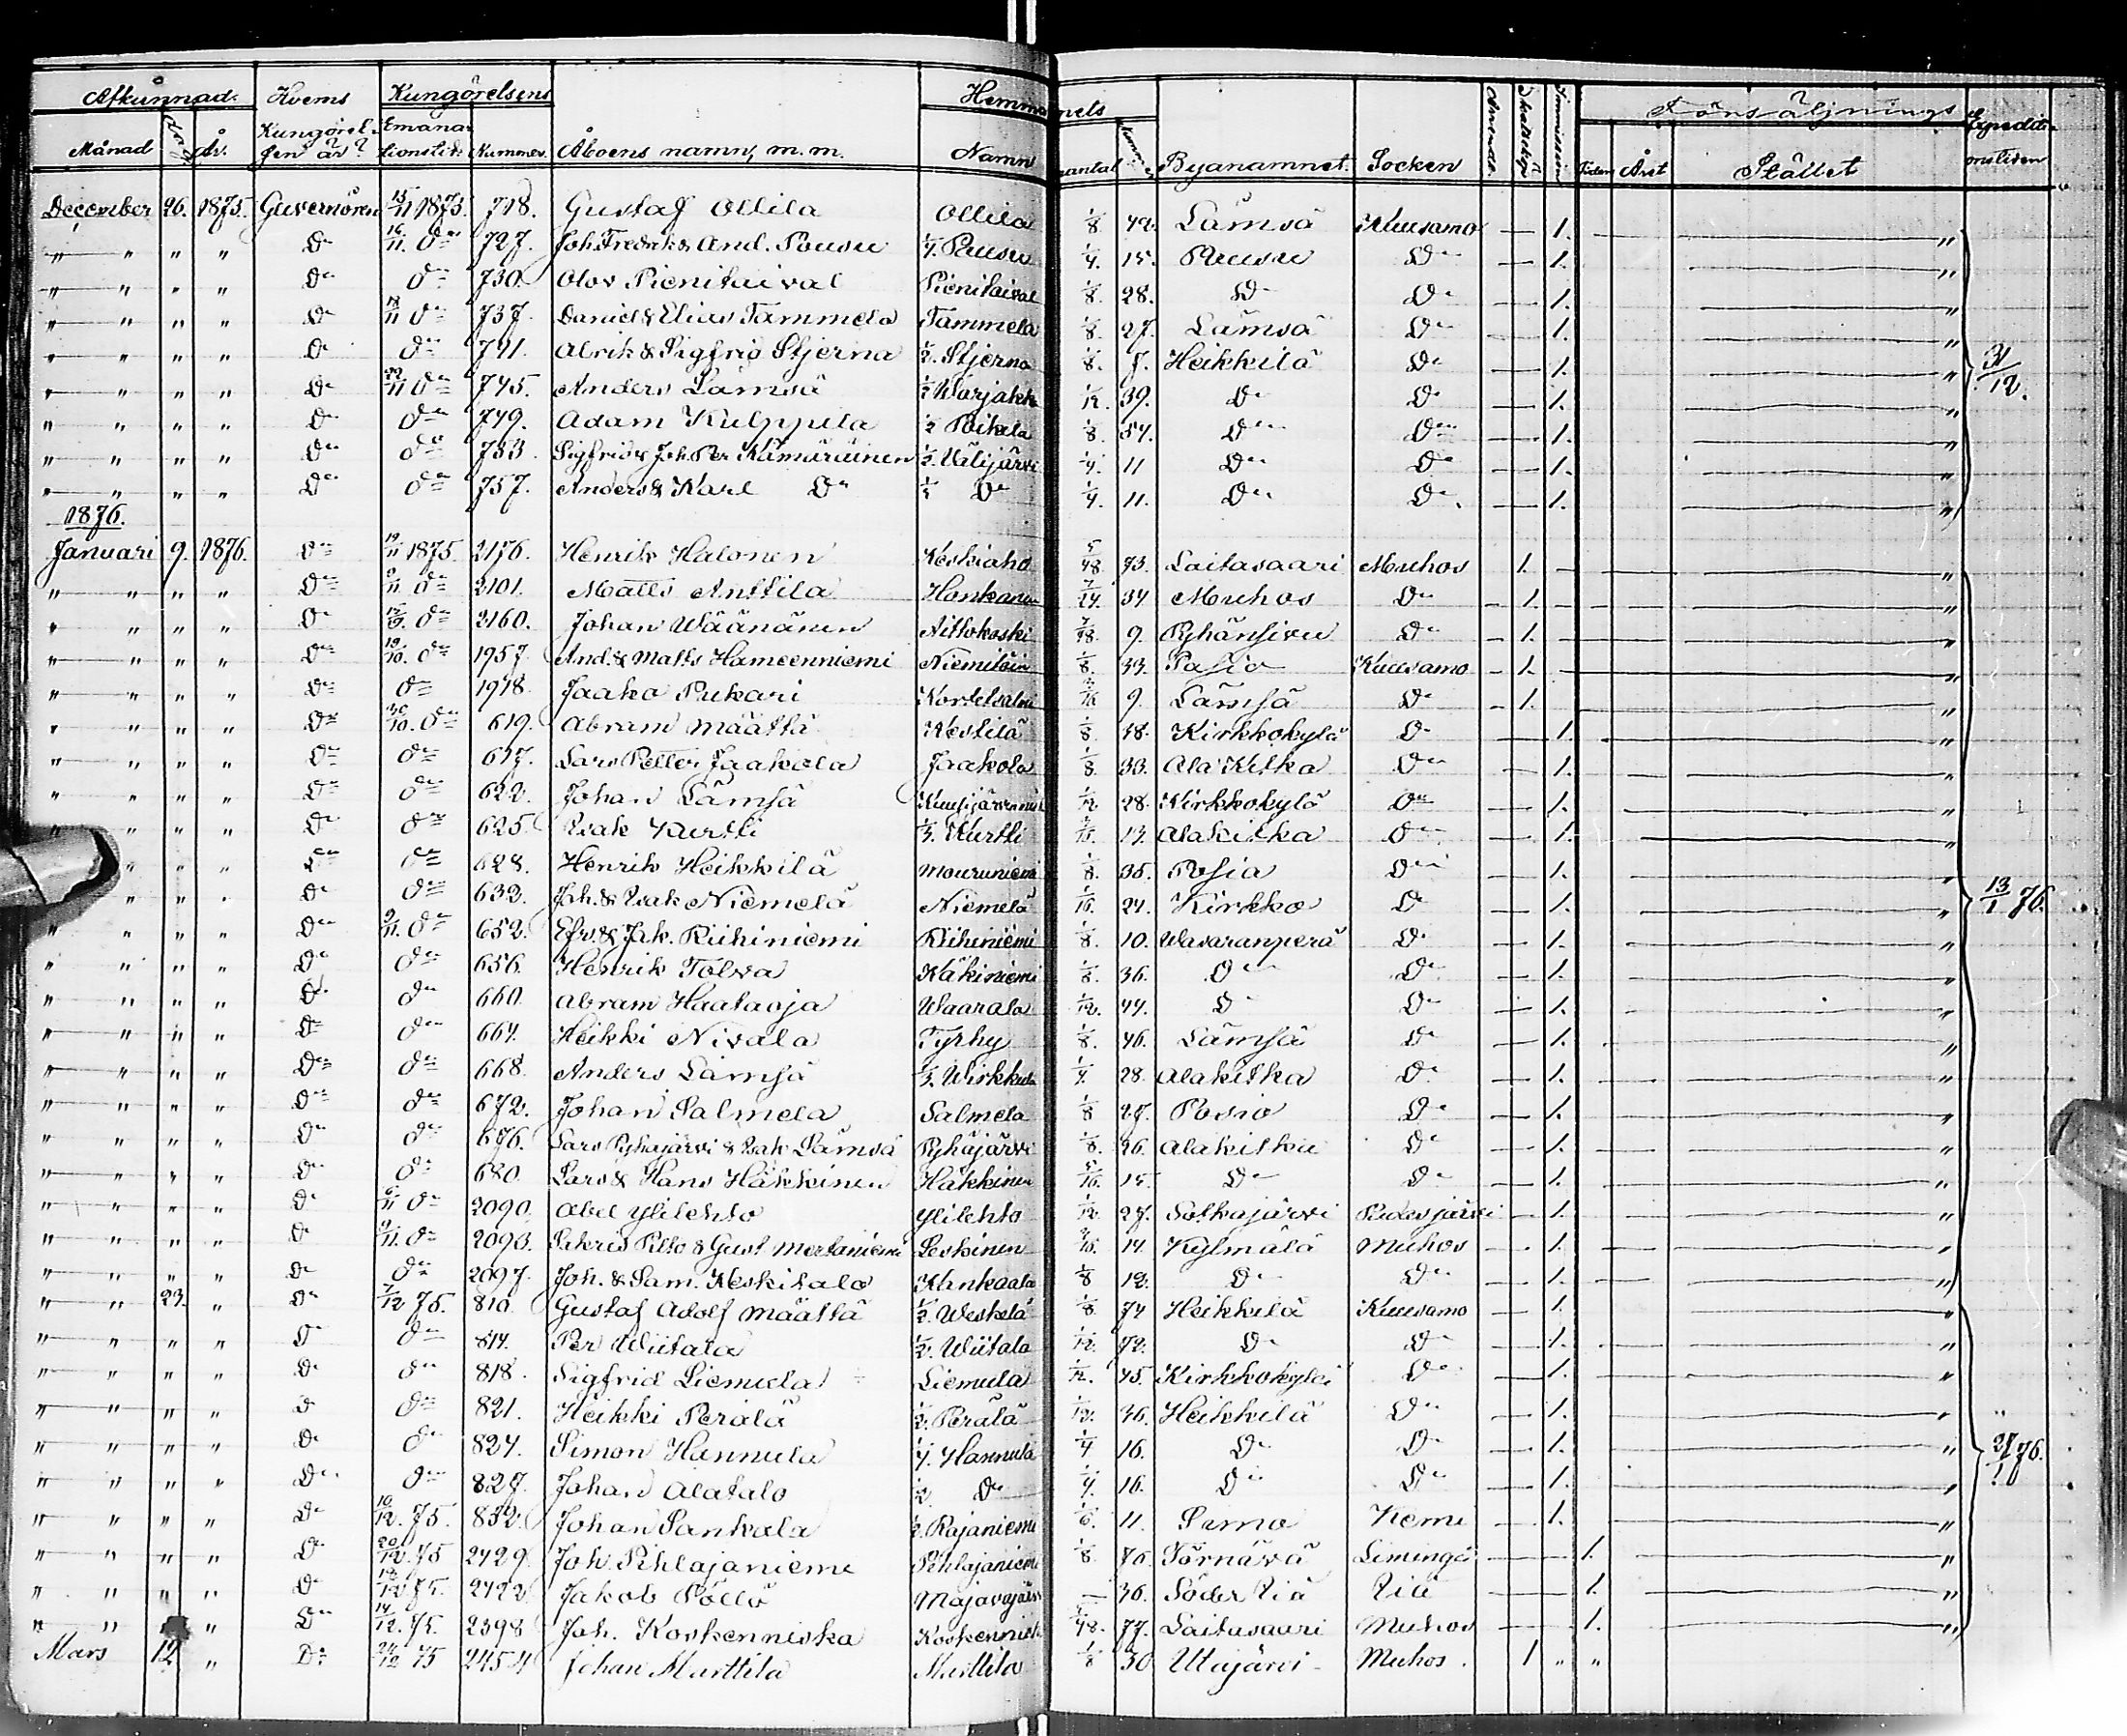 Afkunnad. Hvems Kungörelsens Hemmanets Försäljnings Expediti-
Månad Dag År. Kungörelsen är? Emanationstid: Nummer. Åboens namn, m. m. Namn mantal Byanamnet. Socken Skatteköp Immission Tiden Året Stället onstiden
December 26. 1875. Guvernören 15/11 1875. 718. Gustaf Ollila Ollila 1/8 Lämsä Kuusamo — 1. — "
" " " " Do 16/11. Do 727. Joh. Fredrik & And. Pousu 1/4. Pousu 1/4. 15. Pousu Do — 1. — "
" " " " Do Do 730. Olov Pienitaival Pienitaival 1/8. 28. Do Do — 1. — "
" " " " Do 18/11 Do 737. Daniel & Elias Tammela Tammela 1/8. 27. Lämsä Do — 1. — "
" " " " Do Do 741. Alrik & Sigfrid Stjerna 1/2. Stjerna 1/8. 7. Heikkilä Do — 1. — " 31/12.
" " " " Do 22/11 Do 745. Anders Lämsä 1/2 Warjakk 1/12. 39. Do Do — 1. — "
" " " " Do Do 749. Adam Kulppula 1/2 Poikela 1/8. Do Do — 1. — "
" " " " Do Do 753. Sigfrid & Joh. Per Kämäräinen 1/2. Välijärvi 1/4. 11 Do Do — 1. — "
" " " " Do Do 757. Anders & Karl Do 1/2 Do 1/4. 11. Do Do. — 1. — "
1876.
Januari 9. 1876. Do 19/11 1875. 2176. Henrik Halonen Keskiaho 5/48 73. Laitasaari Muhos 1. — "
" " " " Do 9/11 Do 2101. Matts Anttila Honkanen 7/24. 34 Muhos Do — 1. — "
" " " " Do Do 2160. Johan Wäänänen Aittokoski 7/48. 9. Pyhänsivu Do — 1. — "
" " " " Do 19/10. Do 1957. And. & Matts Hameenniemi 1/8. 33. Posio Kuusamo — 1. — "
" " " " Do Do 1918. Jaako Pukari 9. Lämsä Do — 1. — "
" " " " Do 30/10. Do 619. Abram Määttä Kestilä 1/8. 18. Kirkkokylä Do 1. — "
" " " " Do Do 617. Lars Petter Jaakola Jaakola 1/8. 33. Ala Kitka Do — 1. — "
" " " " Do Do 622. Johan Lämsä 1/12 28. Kirkkokylä Do — 1. — "
" " " " Do Do 625. Isak Kurtti 1/3. Kurtti 13. Alakitka Do — 1. — "
" " " Do Do 628. Henrik Heikkilä Mouruniemi 1/8. 35. Posio Do — 1. — "
" " " Do Do 632. Joh. & Isak Niemelä Niemelä 1/16. 24. Kirkko Do — 1. — " 13/1 76.
" " " " Do 9/11. Do 652. Efr. & Jak. Riihiniemi Riihiniemi 1/8. 10. Wasaranperä Do — 1. — "
" " " " Do Do 656. Henrik Tolva Käkiniemi 1/8. 36. Do Do — 1. — "
" " " " Do Do 660. Abram Haataoja Waarala 1/12. 44. Do Do — 1. — "
" " " " Do Do 664. Heikki Nivala Tyrhy 1/8. 46. Lämsä Do — 1. — "
" " " " Do Do 668. Anders Lämsä 1/3. Wirkkula 1/4. 28. Alakitka Do — 1. — "
" " " " Do Do 672. Johan Salmela Salmela 1/8 27. Posio Do — 1. — "
" " " " Do Do 676. Lars Pyhäjärvi & Isak Lämsä Pyhäjärvi 1/8. 26. Alakitka Do — 1. — "
" " " " Do Do 680. Lars & Hans Häkkinen Häkkinen 15. Do Do — 1. — "
" " " " Do Do 2090. Abel Ylilehto Ylilehto 1/12 27. Sotkajärvi Pudasjärvi — 1. — "
" " " " Do 9/11. Do 2093. Sakris Pitto & Gust Mertaniemi Leskinen 14. Kylmälä Muhos — 1. — "
" " " " Do Do 2097. Joh. & Sam. Keskitalo Kankaala 1/8 12. Do Do — 1. — "
" " 23. " Do 1/12 75. 810. Gustaf Adolf Määttä 1/2. Weskelä 1/8. 74 Heikkilä Kuusamo — 1. — "
" " " " Do Do 814. Per Wiitala 1/2. Wiitala 1/12. 72. Do Do — 1. — "
" " " " Do Do 818. Sigfrid Liemula Liemula 1/12. 45. Kirkkokylä Do — 1. — "
" " " " Do Do 821. Heikki Perälä 1/2. Perälä 1/12. 36. Heikkilä Do — 1. — "
" " " " Do Do 824. Simon Hannula 1/4. Hannula 1/4 16. Do Do — 1. — " 27/1 76.
" " " " Do Do 827. Johan Alatalo 1/2 Do 1/4. 16. Do Do — 1. — "
" " " " Do 10/12. 75. 832. Johan Sankala 1/2. Rajaniemi 1/6. 11. Simo Kemi — 1. — "
" " " " Do 20/12. 75 2429. Joh. Pihlajaniemi Pihlajaniemi 1/8. 76. Törnävä Limingo — 1. — "
" " " " Do 2422. Jakob Pöllö Majavajärvi — 36. Söder Iiå Iiå — 1. — "
" " " Do 14/12. 75. 2398 Joh. Koskenniska Koskennisk 77. Laitasaari Muhos — 1. — "
Mars 12 " Do 24/12 75 2454 Johan Marttila Marttila 1/8 30 Utajärvi Muhos. 1 " "